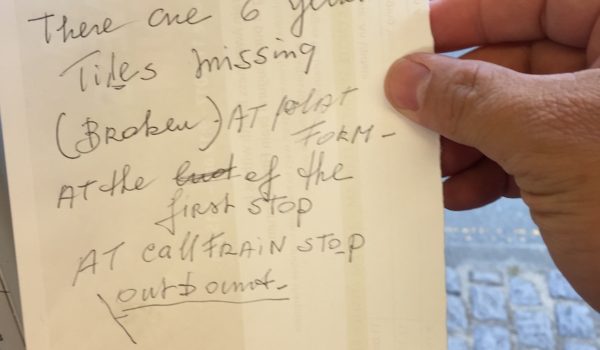 There are 6 yell
Tiles missing
(Broken) AT plAT
FORM -
AT the end of the
first STOP
AT call TRAIN STOP
outbound -